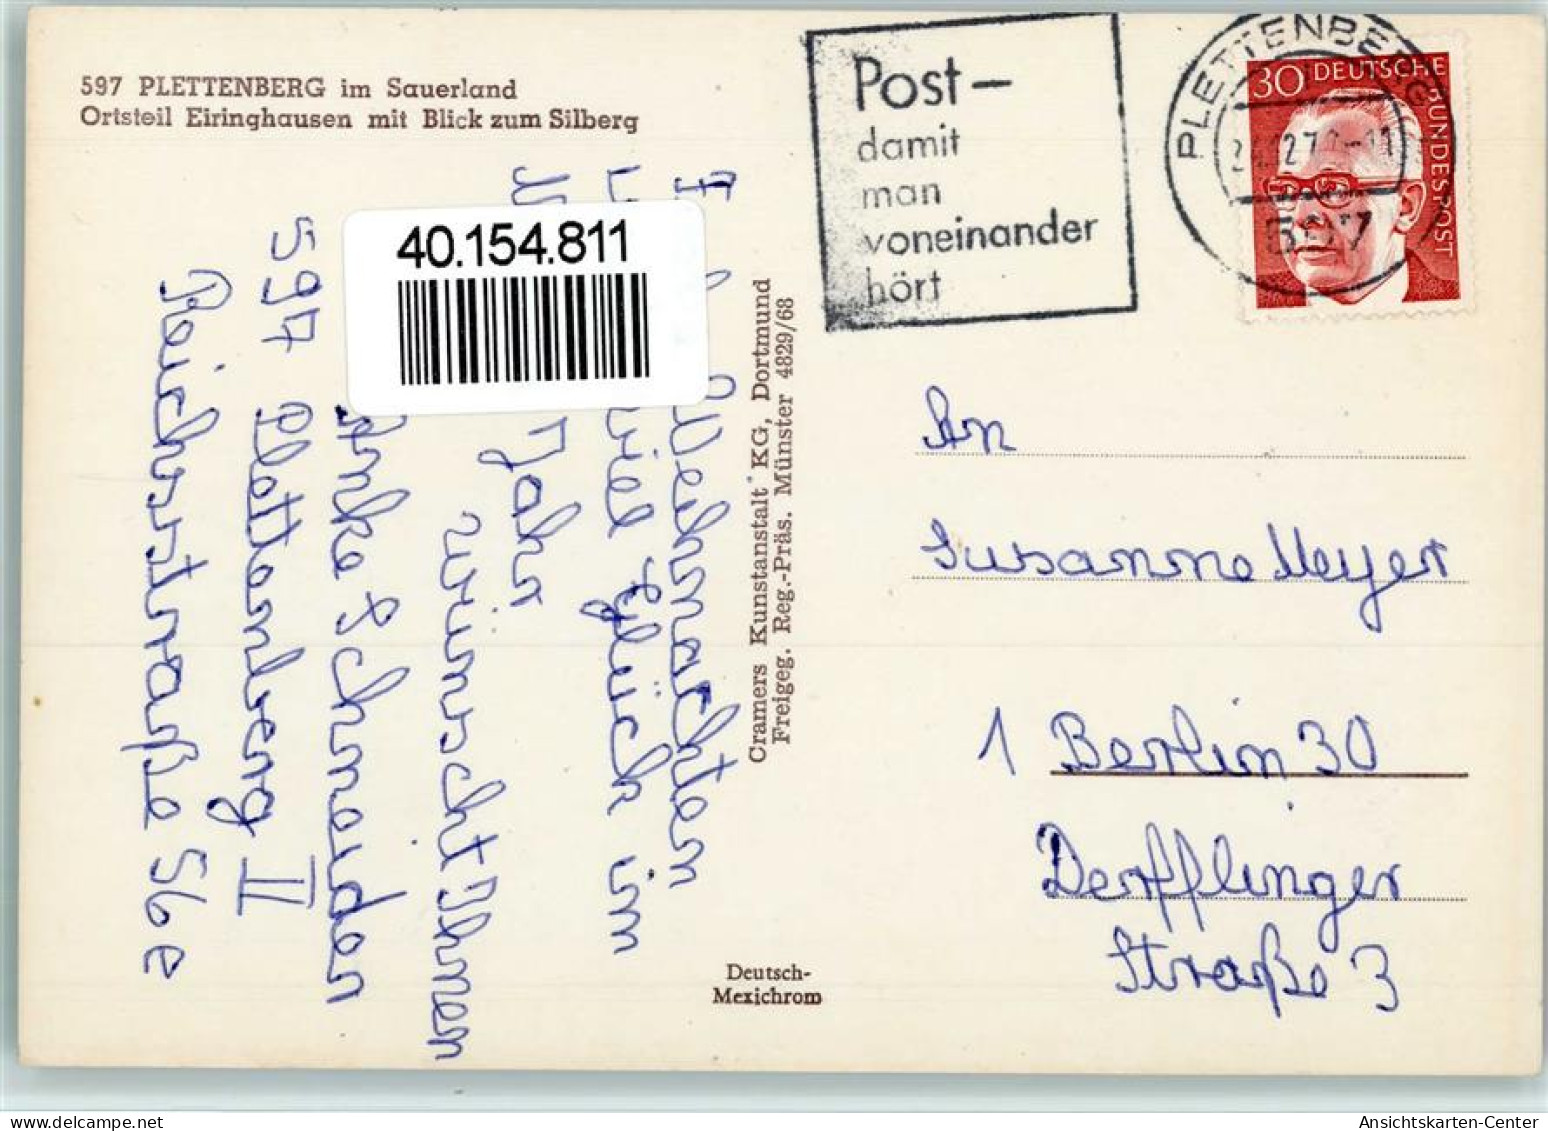 597 PLETTENBERG im Sauerland
Ortsteil Eiringhausen mit Blick zum Silberg
Post –
damit
man
voneinander
hört
PLETTENBERG
597
30 DEUTSCHE BUNDESPOST
40.154.811
Weihnachten
viel Glück im
Jahr
wünscht Ihnen
Anke Schneider
597 Plettenberg II
Reichsstraße 56e
Cramers Kunstanstalt KG, Dortmund
Freigeg. Reg.-Präs. Münster 4829/68
Deutsch-
Mexichrom
An
Susanne Meyer
1 Berlin 30
Derfflinger
Straße 3
Ansichtskarten-Center